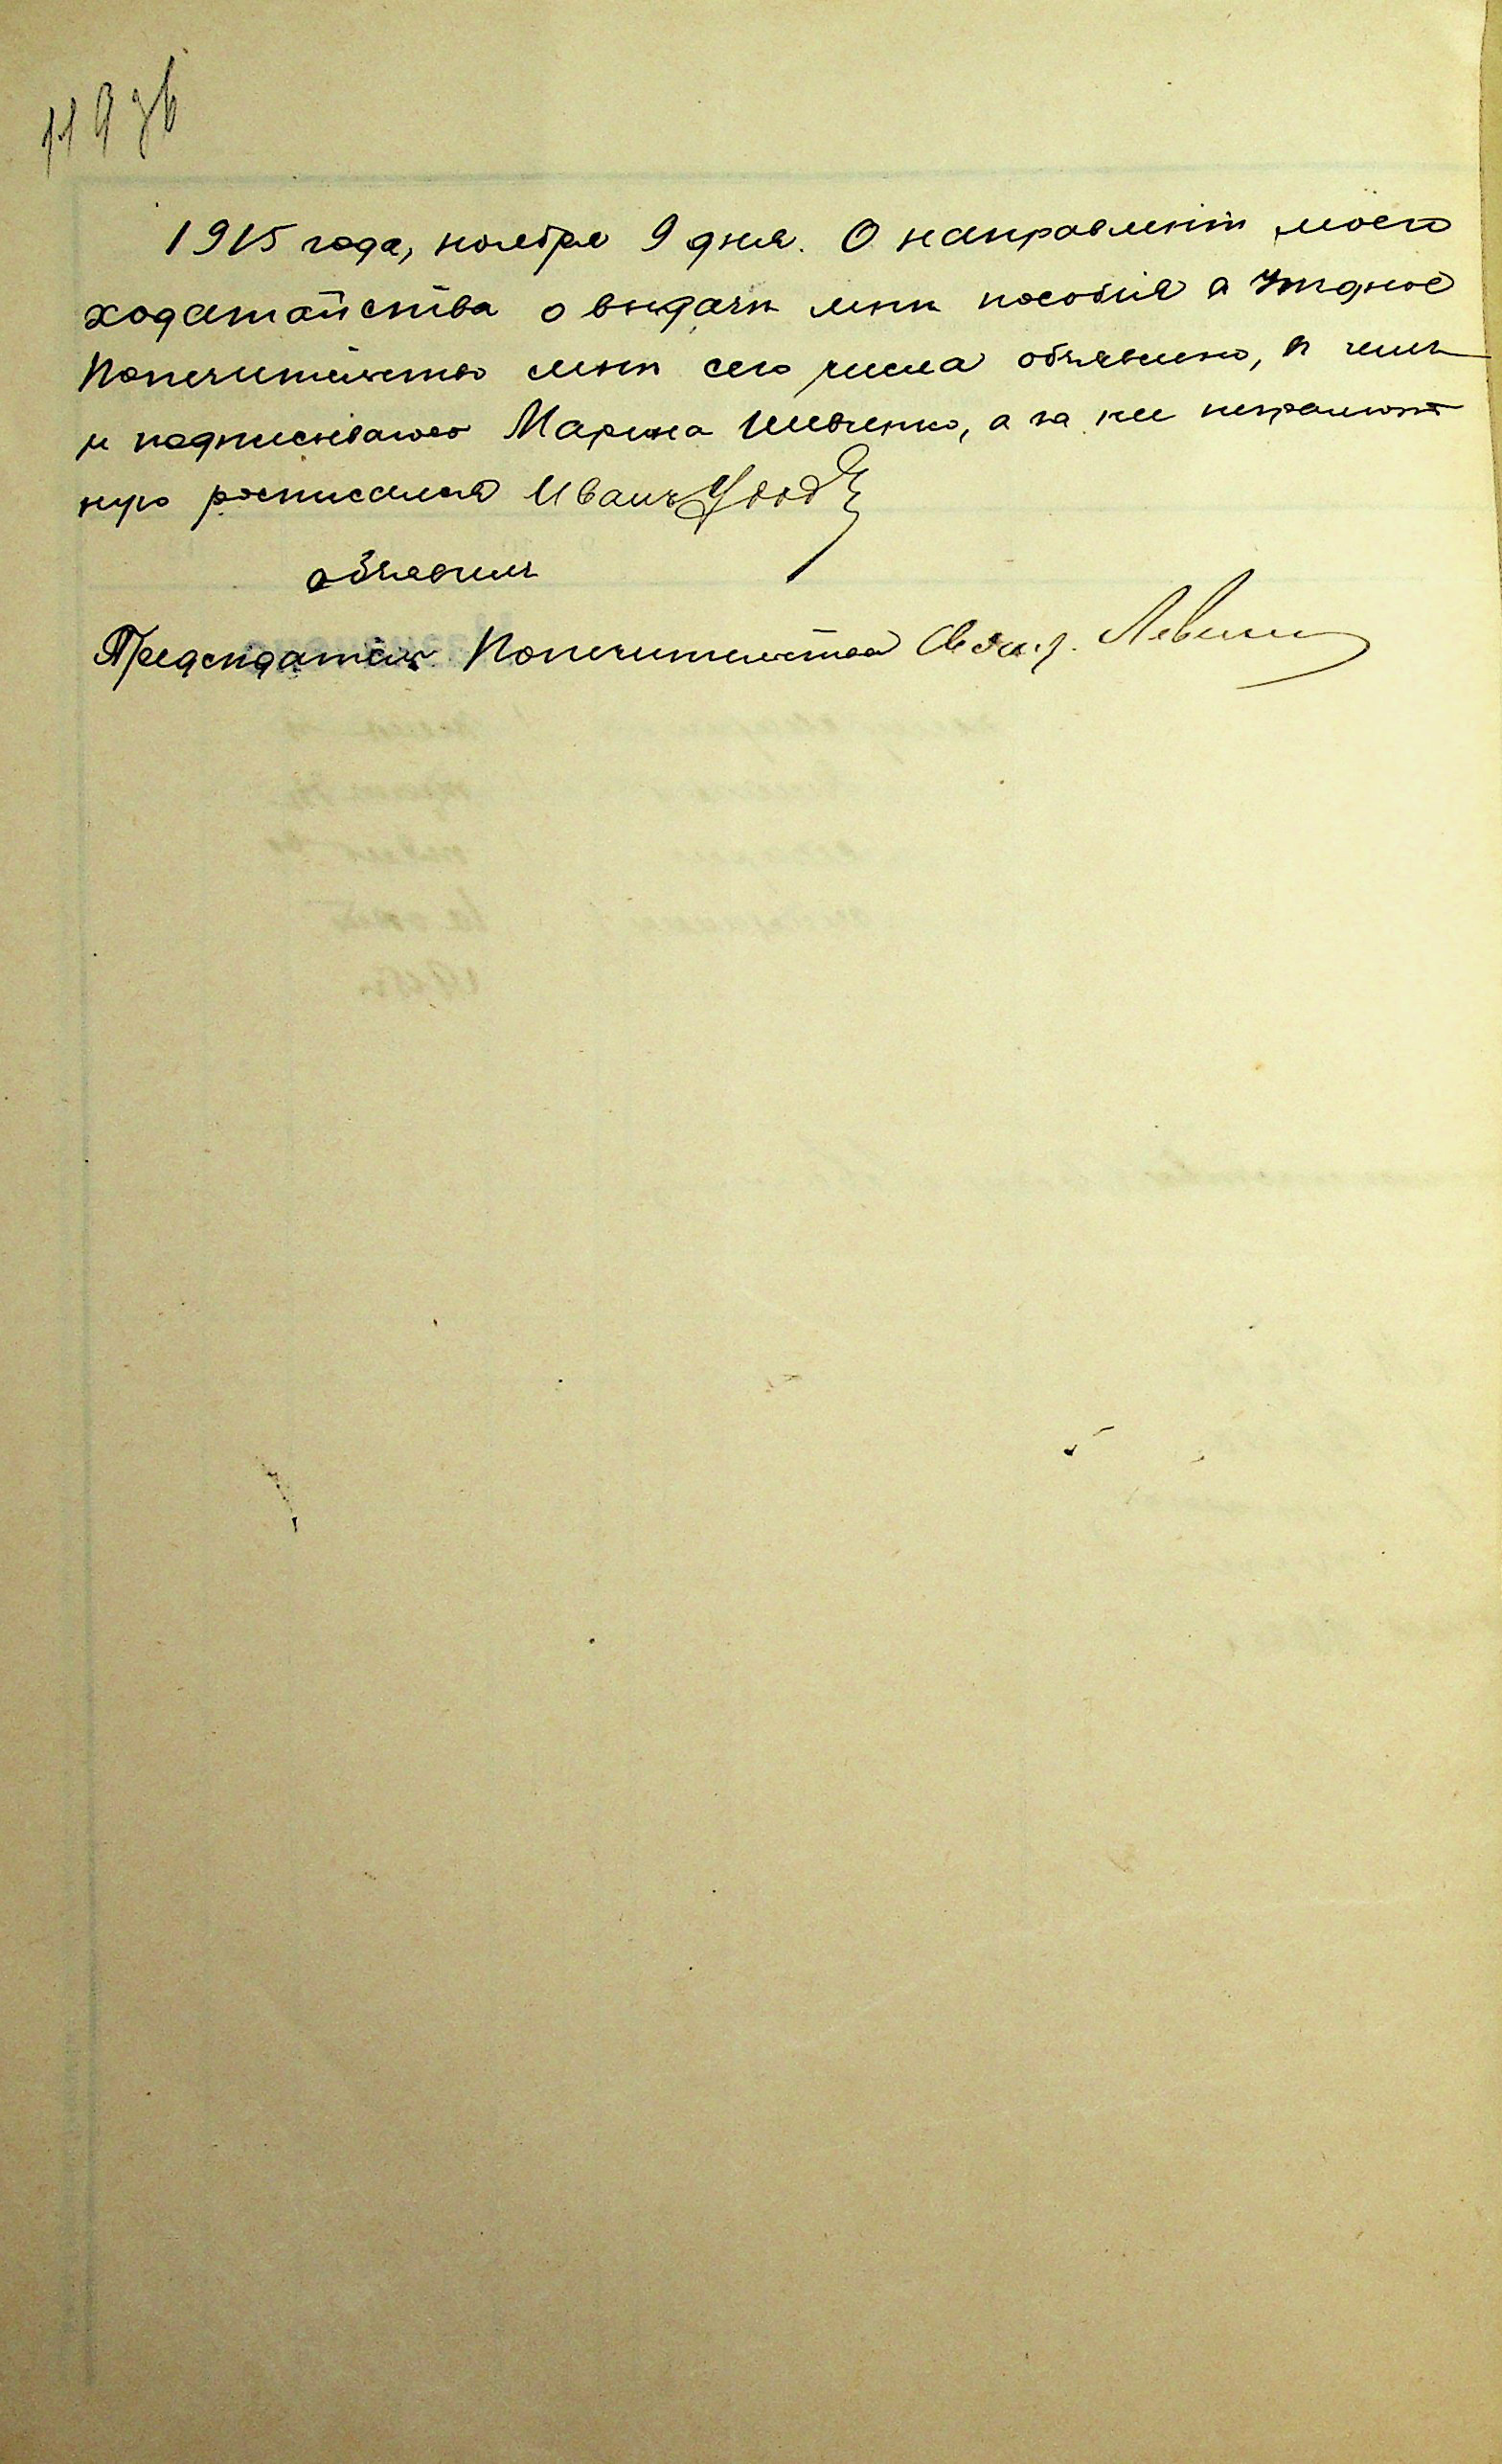 119 зв
1915 года, ноября 9 дня. О направленіи моего
ходатайства о выдачѣ мнѣ пособія в Уѣздное
Попечительство мнѣ сего числа объявлено, в чемъ
и подписываюсь Марина Шевченко, а за нее неграмот
ную росписался Иванъ
объявилъ
Предсѣдатель Попечительства Свящ.